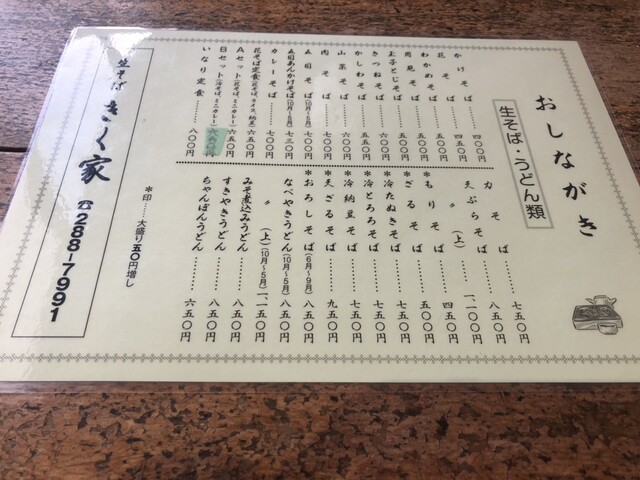 おしながき
生そば・うどん類
かけそば……四〇〇円
花そば……四五〇円
わかめそば……五〇〇円
月見そば……五〇〇円
玉子とじそば……五五〇円
きつねそば……五五〇円
かしわそば……五五〇円
山菜そば……六〇〇円
肉そば……七〇〇円
五目そば(10月~5月)……七〇〇円
五目あんかけそば(10月~5月)……七三〇円
カレーそば……七〇〇円
花そば定食(花そば、ライス、納豆)六五〇円
Aセット(花そば、ミニカレー)六五〇円
Bセット(冷そば、ミニカレー)
いなり定食……八〇〇円
力そば……七五〇円
天ぷらそば……八五〇円
〃(上)……一、一〇〇円
*もりそば……四五〇円
*ざるそば……五〇〇円
*冷たぬきそば……七五〇円
*冷とろろそば……七五〇円
*冷納豆そば……七五〇円
*天ざるそば……九五〇円
*おろしそば(6月~9月)八五〇円
なべやきうどん(10月~5月)八五〇円
〃(上)(10月~5月)一、一五〇円
みそ煮込みうどん(10月~5月)八五〇円
すきやきうどん……八五〇円
ちゃんぽんうどん……六五〇円
*印……大盛り五〇円増し
生そば きく家
☎288-7991